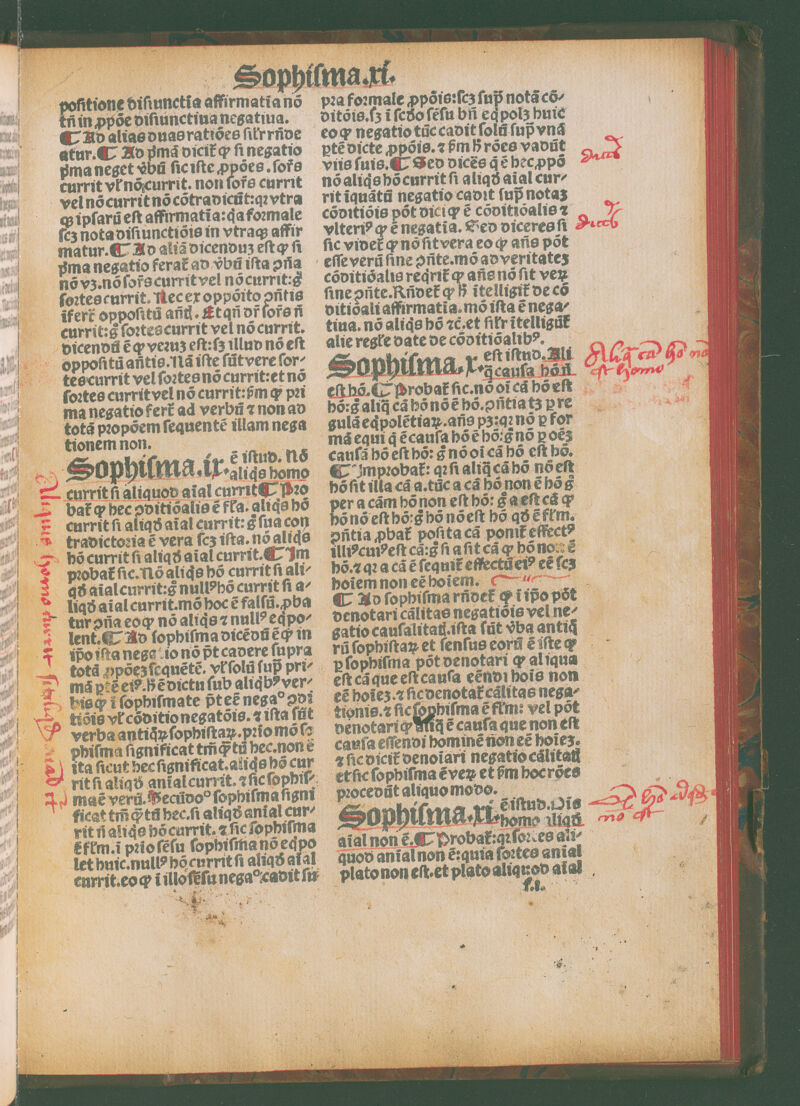 Sophiſma.xi.
poſitione diſiunctīa affirmatīa nō
tñ in ꝓpōe diſiunctiua negatiua.
¶ Ad alias duas ratiōes ſilr rñde
atur.¶ Ad pͥmā dicit̃ ꝙ ſi negatio
pͥma neget v̄bū ſic iſte ꝓpōes.ſor̃s
currit vl̃ nō currit. non ſor̃s currit
vel nō currit nō cōtradicūt:qꝛ vtra
qꝫ ipſarū eſt affirmatīa:q̃a formale
ſcꝫ nota diſiunctiōis in vtraqꝫ affir
matur.¶ Ad aliā dicenduꝫ eſt ꝙ ſi
pͥma negatio ferat̃ ad v̄bū iſta ↄ̃ña
nō vꝫ.nō ſor̃s currit vel nō currit:g̊
ſortes currit. Nec ex oppōito ↄ̃ñtis
īfert̃ oppoſitū añt̃. Et qñ dr̃ ſor̃s ñ
currit:g̊ ſortes currit vel nō currit.
dicendū ē ꝙ veꝝ eſt:ſꝫ illud nō eſt
oppoſitū añtis.Nā iſte ſūt vere ſor⸗
tes currit vel ſortes nō currit:et nō
ſortes currit vel nō currit:ẜm ꝙ pri
ma negatio fert̃ ad verbū ⁊ non ad
totā ꝓpoēm ſequentē illam nega
tionem non.
Sophiſma.ix. ē iſtud. Nō
aliqͥs homo
currit ſi aliquod aīal currit¶ Pro
bat̃ ꝙ hec ↄditiōalis ē fl̃a. aliqͥs hō
currit ſi aliqd̓ aīal currit: g̊ ſua con
tradictoria ē vera ſcꝫ iſta.nō aliqͥs
hō currit ſi aliqd̓ aīal currit.¶ Im
probat̃ ſic.Nō aliqͥs hō currit ſi ali⸗
qd̓ aīal currit:g̊ nullꝰ hō currit ſi a⸗
liqd̓ aīal currit.mō hoc ē falſū.ꝓba
tur ↄ̃ña eo ꝙ nō aliqͥs ⁊ nullꝰ eq̄po⸗
lent.¶ Ad ſophiſma dicēdū ē ꝙ in
ip̄o iſta nega tio nō p̄t cadere ſupra
totā ꝓpōeꝫ ſequētē. vl̃ ſolū ſuꝑ pri⸗
mā ptē eiꝰ.h̄ ē dictu ſub aliqͥbꝰ ver⸗
bis ꝙ ī ſophiſmate p̄t eē negaᵒ ↄdi
tiōis vl̃ cōditio negatōis. ⁊ iſta ſūt
verba antiqͦꝝ ſophiſtaꝝ.prīo mō ſo
phiſma ſignificat tm̄ q̄tū hec.non ē
ita ſicut hec ſignificat.aliqͥs hō cur
rit ſi aliqd̓ anīal currit. ⁊ ſic ſophiſ⸗
ma ē verū. Secūdoᵒ ſophiſma ſigni
ficat tm̄ q̄tū hec.ſi aliqd̓ anīal cur⸗
rit ñ aliqͥs hō currit. ⁊ ſic ſophiſma
ē fl̃m.ī prīo ſēſu ſophiſma nō eq̄po
let huic.nullꝰ hō currit ſi aliqd̓ aīal
currit.eo ꝙ ī illo ſēſu negaᵒ cadit ſu
pra formale ꝓpōis:ſcꝫ ſuꝑ notā cō⸗
ditōis.ſꝫ ī ſcd̓o ſēſu bñ eq̄polꝫ huic
eo ꝙ negatio tūc cadit ſolū ſuꝑ vnā
ptē dicte ꝓpōis. ⁊ ẜm h̄ rōes vadūt
viis ſuis.¶ Sed dicēs q̄ ē hec ꝓpō
nō aliqͥs hō currit ſi aliqd̓ aīal cur⸗
rit īquātū negatio cadit ſuꝑ notaꝫ
cōditiōis pōt dici ꝙ ē cōditiōalis ⁊
vlteriꝰ ꝙ ē negatīa. Sed diceres ſi
ſic videt̃ ꝙ nō ſit vera eo ꝙ añs pōt
eſſe verū ſine ↄ̃ñte.mō ad veritateꝫ
cōditiōalis reqͥrit̃ ꝙ añs nō ſit veꝝ
ſine ↄ̃ñte.Rñdet̃ ꝙ h̄ ītelligit̃ de cō
ditiōali affirmatīa.mō iſta ē nega⸗
tiua. nō aliqͥs hō ⁊c̃.et ſilr ītelligūt̃
alie regl̃e date de cōditiōalibꝰ.
Sophiſma.x. eſt iſtud.Ali
q̄ cauſa hōi ñ
eſt hō.¶ Probat̃ ſic.nō oī cā hō eſt
hō:g̊ aliq̄ cā hō nō ē hō.ↄ̃ñtia tꝫ ꝑ re
gulā eq̄polētiaꝝ.añs pꝫ:qꝛ nō ꝑ for
mā equi q̄ ē cauſa hō ē hō:g̊ nō ꝑ oēꝫ
cauſā hō eſt hō: g̊ nō oī cā hō eſt hō.
¶ Improbat̃: qꝛ ſi aliq̄ cā hō nō eſt
hō ſit illa cā a.tūc a cā hō non ē hō g̊
per a cām hō non eſt hō: g̊ a eſt cā ꝙ
hō nō eſt hō:g̊ hō nō eſt hō qd̓ ē fl̃m.
ↄ̃ñtia ꝓbat̃ poſita cā ponit̃ effectꝰ
illiꝰ cuiꝰ eſt cā:g̊ ſi a ſit cā ꝙ hō no: ē
hō.⁊ qꝛ a cā ē ſequit̃ effectū eiꝰ eē ſcꝫ
hoīem non eē hoīem.
¶ Ad ſophiſma rñdet̃ ꝙ ī ip̄o pōt
denotari cālitas negatiōis vel ne⸗
gatio cauſalitatꝭ.iſta ſūt v̄ba antiq̄
rū ſophiſtaꝝ et ſenſus eorū ē iſte ꝙ
ꝑ ſophiſma pōt denotari ꝙ aliqua
eſt cā que eſt cauſa eēndi hoīs non
eē hoīeꝫ.⁊ ſic denotat̃ cālitas nega⸗
tionis.⁊ ſic ſophiſma ē fl̃m: vel pōt
denotari ꝙ aliq̄ ē cauſa que non eſt
cauſa eſſendi hominē non eē hoīeꝫ.
⁊ ſic dicit̃ denotari negatio cālitatꝭ
et ſic ſophiſma ē veꝝ et ẜm hoc rōes
procedūt aliquo modo.
Sophiſma.xi. ē iſtud. Ois
homo aliqd̓
aīal non ē.¶ Probat̃:qꝛ ſortes ali⸗
quod anīal non ē:quia ſortes anīal
plato non eſt.et plato aliquod aīal
f.i.